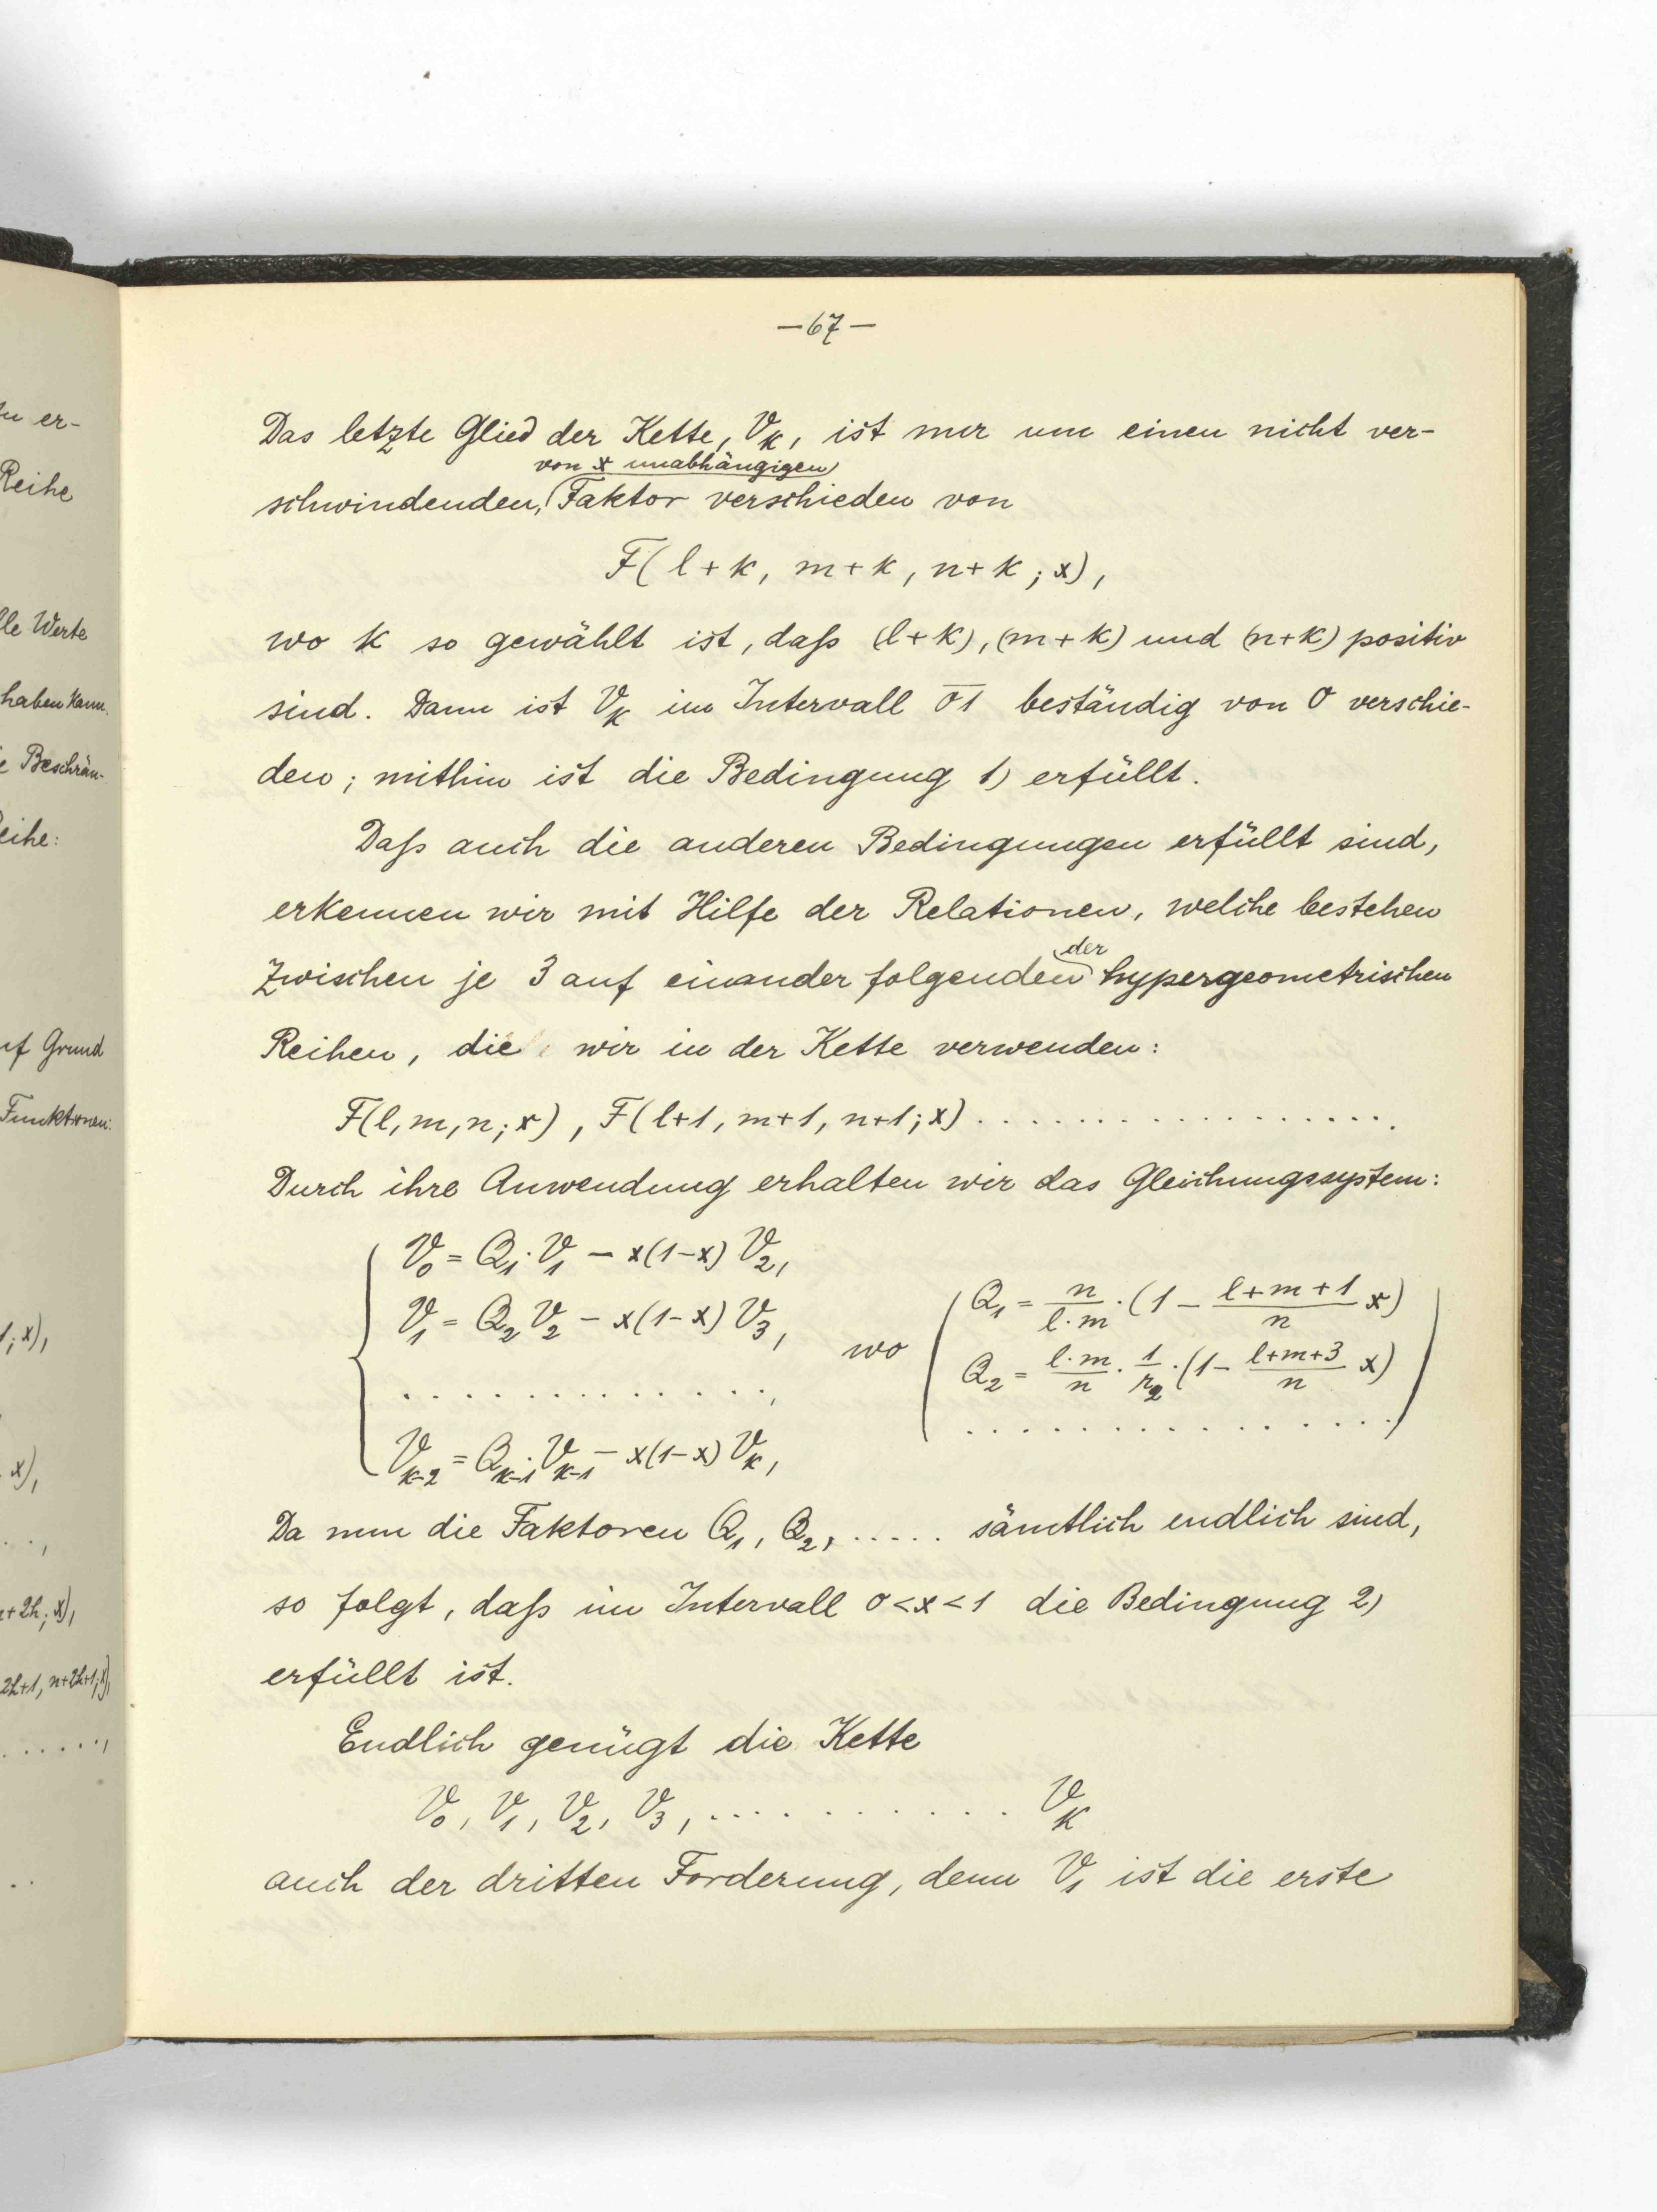 zu er-
Reihe
lle Werte
haben kann.
e Beschrän-
eihe:
uf Grund
Funktionen:
1; x),
x),
n+2h; x),
2h+1, n+2h+1; x),
— 67 —
Das letzte Glied der Kette, V_k, ist nur um einen nicht ver-
von x unabhängigen
schwindenden, Faktor verschieden von
F(l+k, m+k, n+k; x),
wo k so gewählt ist, daß (l+k), (m+k) und (n+k) positiv
sind. Dann ist V_k im Intervall 0̅1̅ beständig von 0 verschie-
den; mithin ist die Bedingung 1) erfüllt.
Daß auch die anderen Bedingungen erfüllt sind,
erkennen wir mit Hilfe der Relationen, welche bestehen
der
zwischen je 3 auf einander folgenden hypergeometrischen
Reihen, die wir in der Kette verwenden:
F(l, m, n; x), F(l+1, m+1, n+1; x) . . . . . . . . . . . . . . . . .
Durch ihre Anwendung erhalten wir das Gleichungssystem:
V_0 = Q_1 · V_1 – x(1–x) V_2,
V_1 = Q_2 V_2 – x(1–x) V_3,
. . . . . . . . . . . . . . ,
V_{k-2} = Q_{k-1} · V_{k-1} – x(1–x) V_k,
wo
Q_1 = n/(l·m) · (1 – (l+m+1)/n x)
Q_2 = (l·m)/n · 1/r_2 · (1 – (l+m+3)/n x)
. . . . . . . . . . . . . . . .
Da nun die Faktoren Q_1, Q_2, . . . . . sämtlich endlich sind,
so folgt, daß im Intervall 0<x<1 die Bedingung 2)
erfüllt ist.
Endlich genügt die Kette
V_0, V_1, V_2, V_3, . . . . . . . . . . . . V_k
auch der dritten Forderung, denn V_1 ist die erste